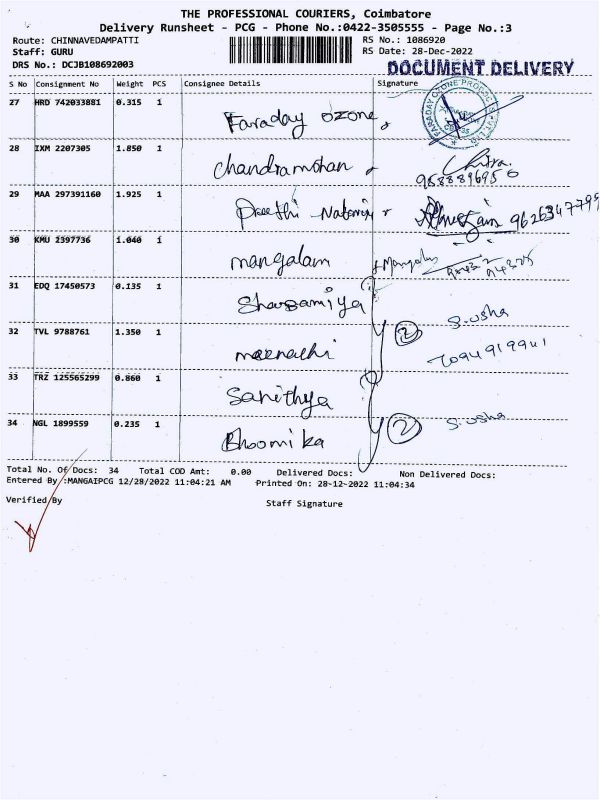 THE PROFESSIONAL COURIERS, Coimbatore
Delivery Runsheet - PCG - Phone No.:0422-3505555 - Page No.:3
Route: CHINNAVEDAMPATTI RS No.: 1086920
Staff: GURU RS Date: 28-Dec-2022
DRS No.: DCJB108692003 DOCUMENT DELIVERY
S No Consignment No Weight PCS Consignee Details Signature
27 HRD 742033881 0.315 1 Faraday ozone
28 IXM 2207305 1.850 1 chandramohan Chitra.
9588896950
29 MAA 297391160 1.925 1 Preethi 9626347795
30 KMU 2397736 1.040 1 mangalam
31 EDQ 17450573 0.135 1 S.usha
32 TVL 9788761 1.350 1 meenachi 2 7094919941
33 TRZ 125565299 0.860 1 Sanithya
34 NGL 1899559 0.235 1 Bhoomika 2 S.usha
Total No. Of Docs: 34 Total COD Amt: 0.00 Delivered Docs: Non Delivered Docs:
Entered By :MANGAIPCG 12/28/2022 11:04:21 AM Printed On: 28-12-2022 11:04:34
Verified By Staff Signature